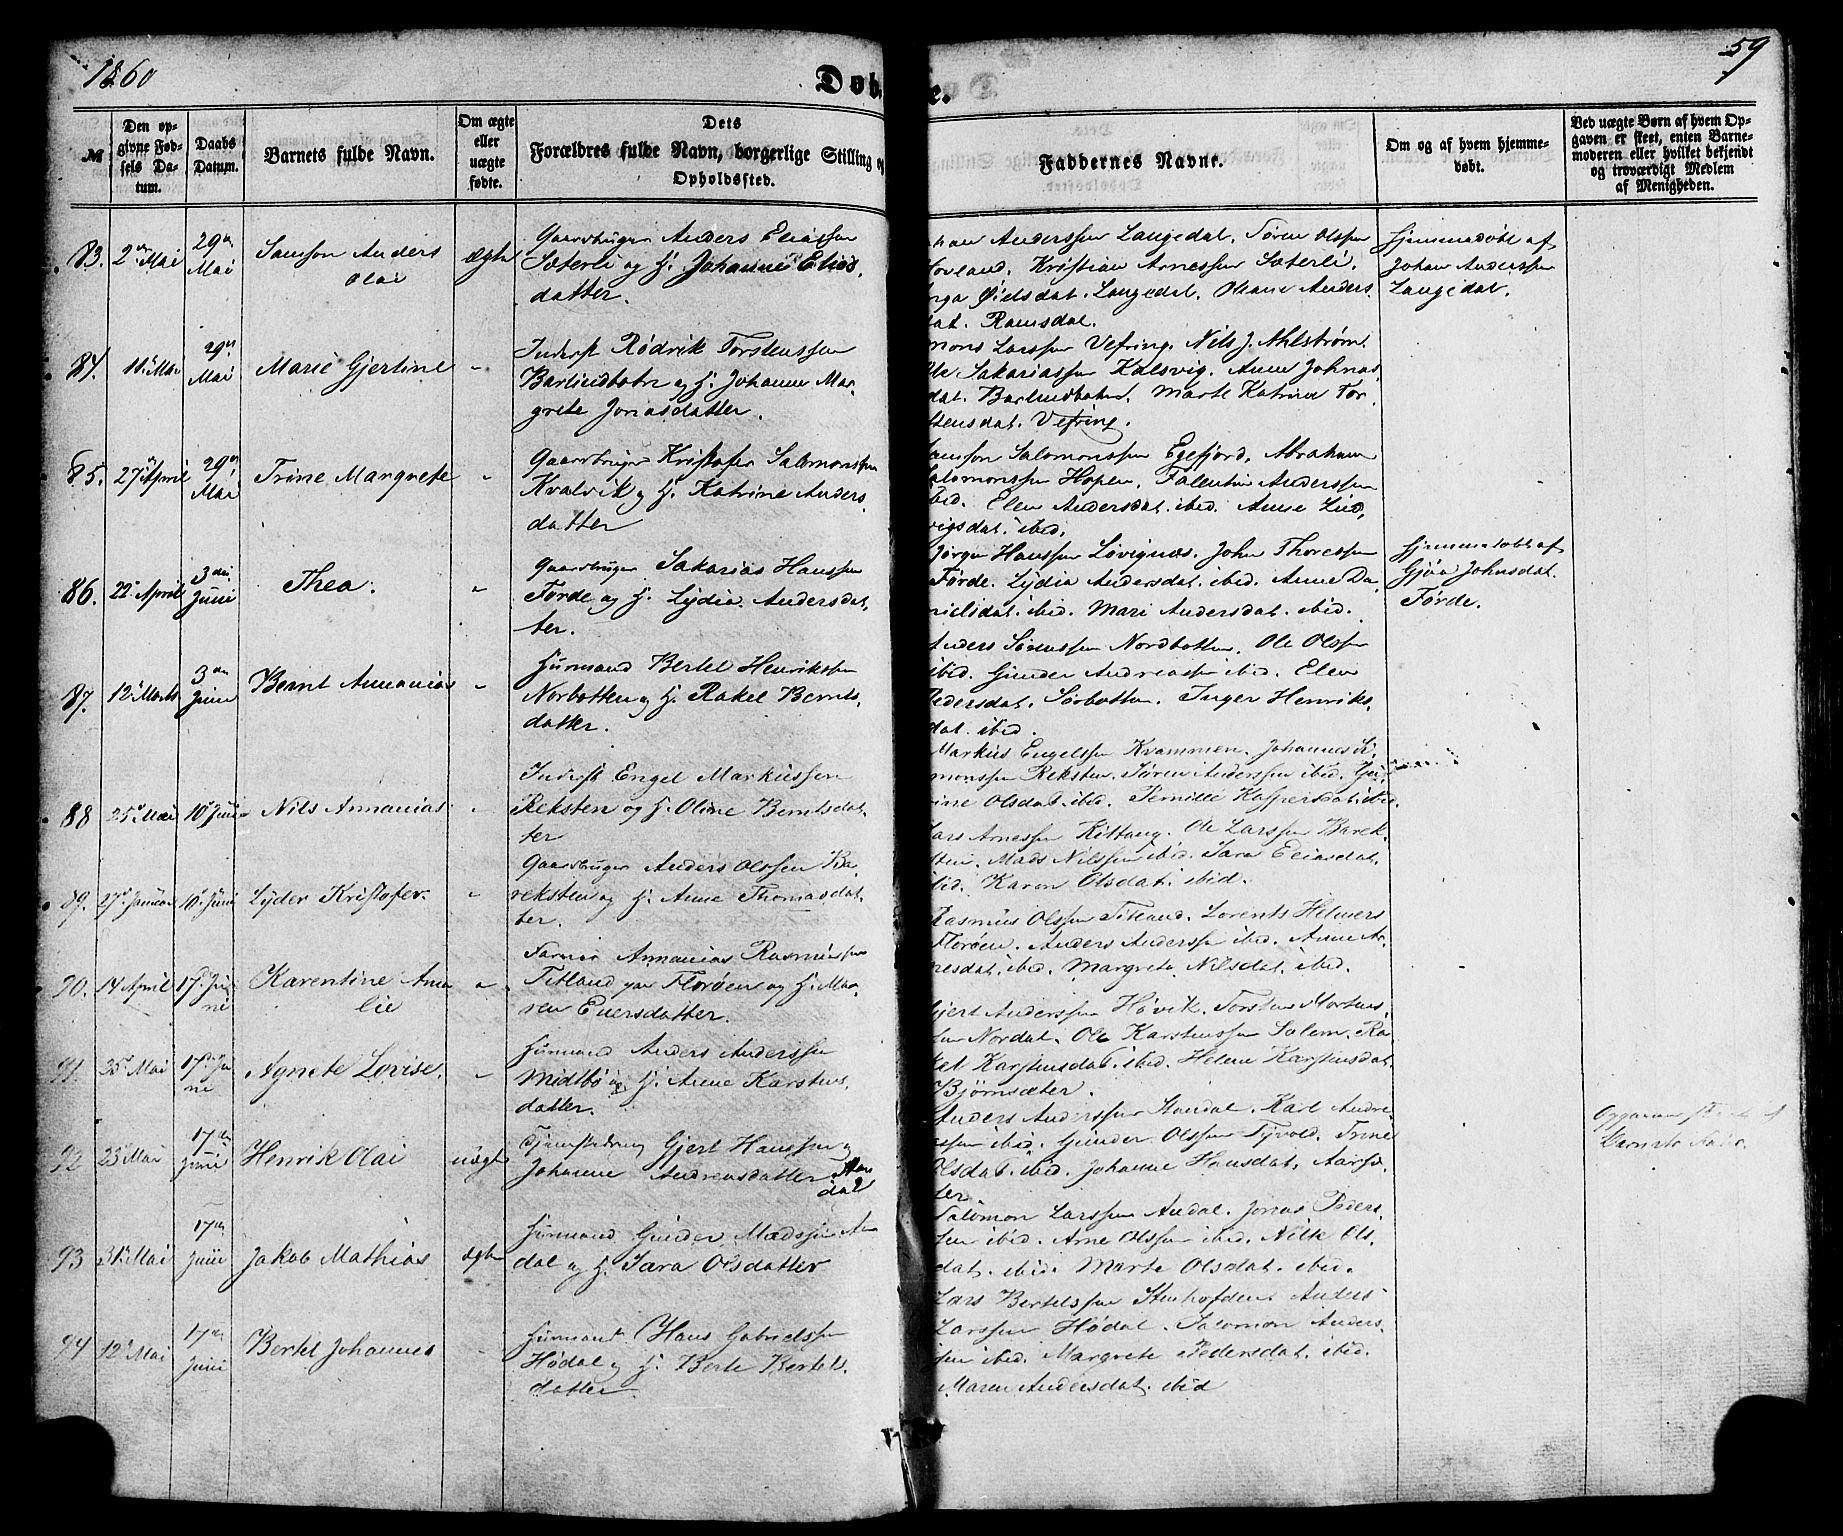 1860
Døb
e.
59
№
Den op-
givne Fød-
sels Da-
tum.
Daabs
Datum.
Barnets fulde Navn.
Om ægte
eller
uægte
fødte.
Dets
Forældres fulde Navn, borgerlige Stilling og
Opholdssted.
Faddernes Navne.
Om og af hvem hjemme-
døbt.
Ved uægte Børn af hvem Op-
gaven er skeet, enten Barne-
moderen eller hvilket bekjendt
og troværdigt Medlem
af Menigheden.
83. 2 Mai 29 Mai Samson Anders Olai ægte
Gaardbruger Anders Eliassen
Sæterli og H. Johanne Elias
datter.
Anderssen Langedal. Søren Olssen
Hovland. Kristian Arnessen Sæterli.
Langedal. Oliane Anders
dat. Ramsdal.
Hjemmedøbt af
Johan Anderssen
Langedal.
84. 11 Mai 29 Mai Marie Gjertine "
Inderst Rødrik Torstenssen
Barlindbotn og H. Johanne Mar
grete Jonasdatter.
mons Larssen Vefring. Nils J. Ahlstrøm.
Ole Sakariassen Kalsvig. Anne Johnas
dat. Barlindbotn. Marte Katrine Tor
stensdat. Vefring.
85. 27 April 29 Mai Trine Margrete "
Gaardbruger Kristofer Salomonssen
Kvalvik og H. Katrine Anders
datter
Samson Salomonssen Egefjord. Abraham
Salomonssen Hopen. Falentin Anderssen
ibid. Elen Andersdat. ibid. Anne Lud
vigsdat. ibid.
86. 22 April 3 Juni Thea. "
Gaardbruger Sakarias Hanssen
Førde og H. Lydia Andersdat
ter.
Jørgen Hanssen Løvignes. John Thoressen
Førde. Lydia Andersdat. ibid. Anne Da
nielsdat. ibid. Mari Andersdat. ibid.
Hjemmedøbt af
Gjøa Johnsdat.
Førde.
87. 12 Marts 3 Juni Bernt Annanias "
Huusmand Bertel Henrikssen
Norbotten og H. Rakel Bernts
datter.
Anders Nordbotten. Ole Olssen
ibid. Gunder Andreassen ibid. Elen
Pedersdat. Sørbotten. Inger Henriks
dat. ibid.
88 25 Mai 10 Juni Nils Annanias "
Inderst Engel Markussen
Reksten og H. Oline Berntsdat
ter
Markus Engelssen Kvammen. Johannes Si
monssen Reksten. Søren Anderssen ibid.
rine Olsdat. ibid. Pernille Kaspersdat. ibid.
89. 27 Januar 10 Juni Lyder Kristofer. "
Gaardbruger Anders Olssen Ba
reksten og H. Anne Thomasdat
ter.
Lars Arnessen Kittang. Ole Larssen Barek
sten. Mads Nilssen ibid. Sara Eliasdat.
ibid. Karen Olsdat. ibid.
90. 14 April 17 Juni Karentine Ama
lie "
Annanias Rasmussen
Titland paa Florøen og H. Ma
ren Enersdatter.
Rasmus Olssen Titland. Lorents Helmers
Florøen. Anders Anderssen ibid. Anne Ar
nesdat. ibid. Margrete Nilsdat. ibid.
91. 25 Mai 17 Juni Agnete Lovise. "
Huusmand Anders Anderssen
Midtbø og H. Anne Karstens
datter.
Gjert Anderssen Høvik. Torsten Mortens
sen Nordal. Ole Karstenssen Solem. Ra
kel Karstensdat. ibid. Helene Karstensdat.
Bjørnsæter.
92 23 Mai 17 Juni Henrik Olai uægte
Gjert Hanssen og
Johanne Andreasdatter
Anders Anderssen Standal. Karl Andre
assen ibid. Gunder Olssen Tyvold. Trine
Olsdat. ibid. Johanne Hansdat. Aarsæ
ter
93 31 Mai 17 Juni Jakob Mathias ægte
Huusmand Gunder Madssen An
dal og H. Sara Olsdatter
Salomon Larssen Andal. Jonas Peders
sen ibid. Arne Olssen ibid. Nille Ols
dat. ibid. Marte Olsdat. ibid.
94 12 Mai 17 Juni Bertel Johannes
Huusmand Hans Gabrielssen
Hødal og H. Berte Bertels
datter.
Lars Bertelssen Stenhofden. Anders
Larssen Hødal. Salomon Anders
sen ibid. Margrete Pedersdat. ibid.
Maren Andersdat. ibid